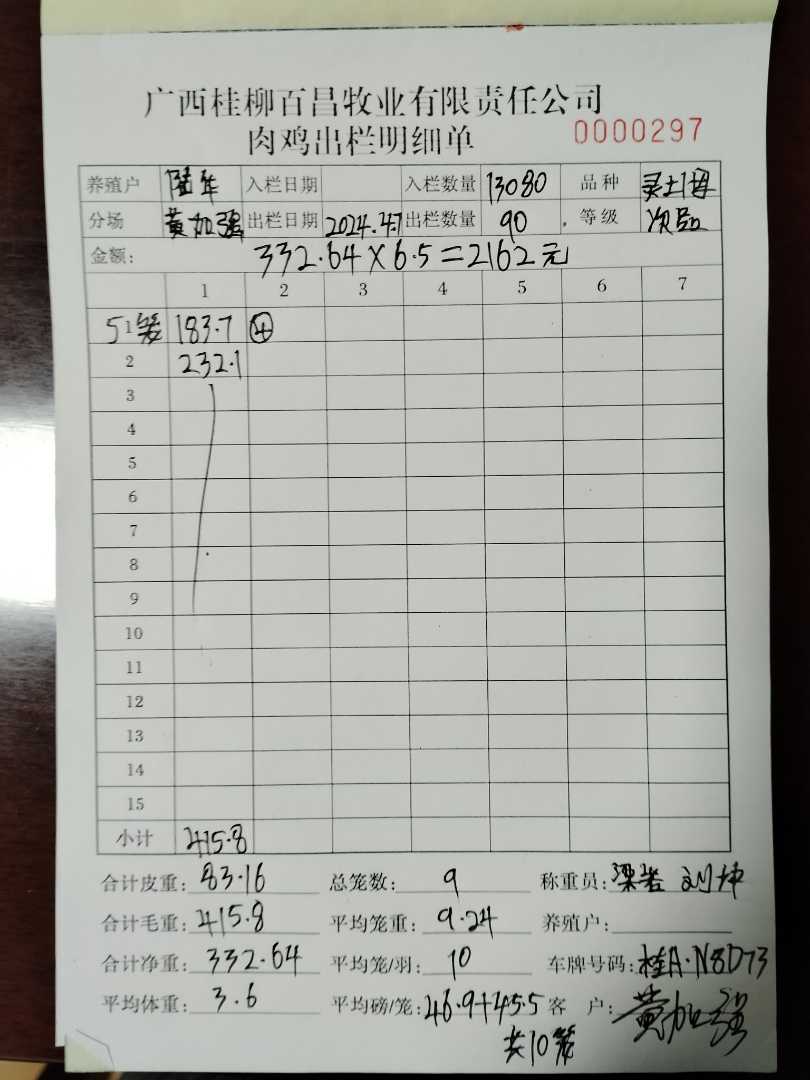 广西桂柳百昌牧业有限责任公司
肉鸡出栏明细单 0000297
养殖户 陆年 入栏日期 入栏数量 13080 品种 灵土1母
分场 黄加强 出栏日期 2024.4.7 出栏数量 90 等级 次品
金额: 332.64×6.5=2162元
1 2 3 4 5 6 7
5 1笼 183.7 ④
2 232.1
3
4
5
6
7
8
9
10
11
12
13
14
15
小计 415.8
合计皮重: 83.16 总笼数: 9 称重员: 刘坤
合计毛重: 415.8 平均笼重: 9.24 养殖户:
合计净重: 332.64 平均笼/羽: 10 车牌号码: 桂A·N8D73
平均体重: 3.6 平均磅/笼: 46.9+45.5 客户: 黄加强
共10笼